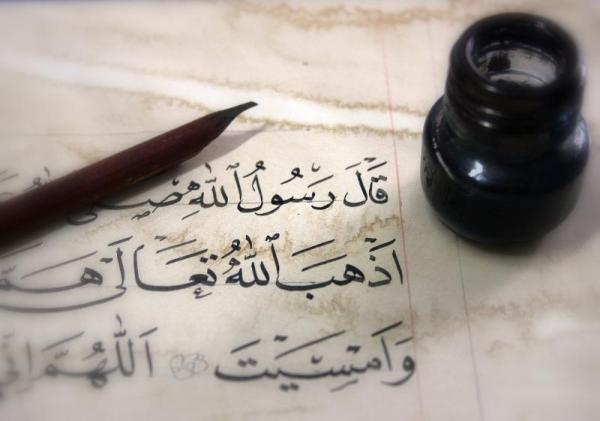 قَالَ رَسُولُ اللّٰهِ صَلَّى
اَذْهَبَ اللّٰهُ تَعَالَى
وَاَمْسَيْتَ اَللّٰهُمَّ اِنِّي